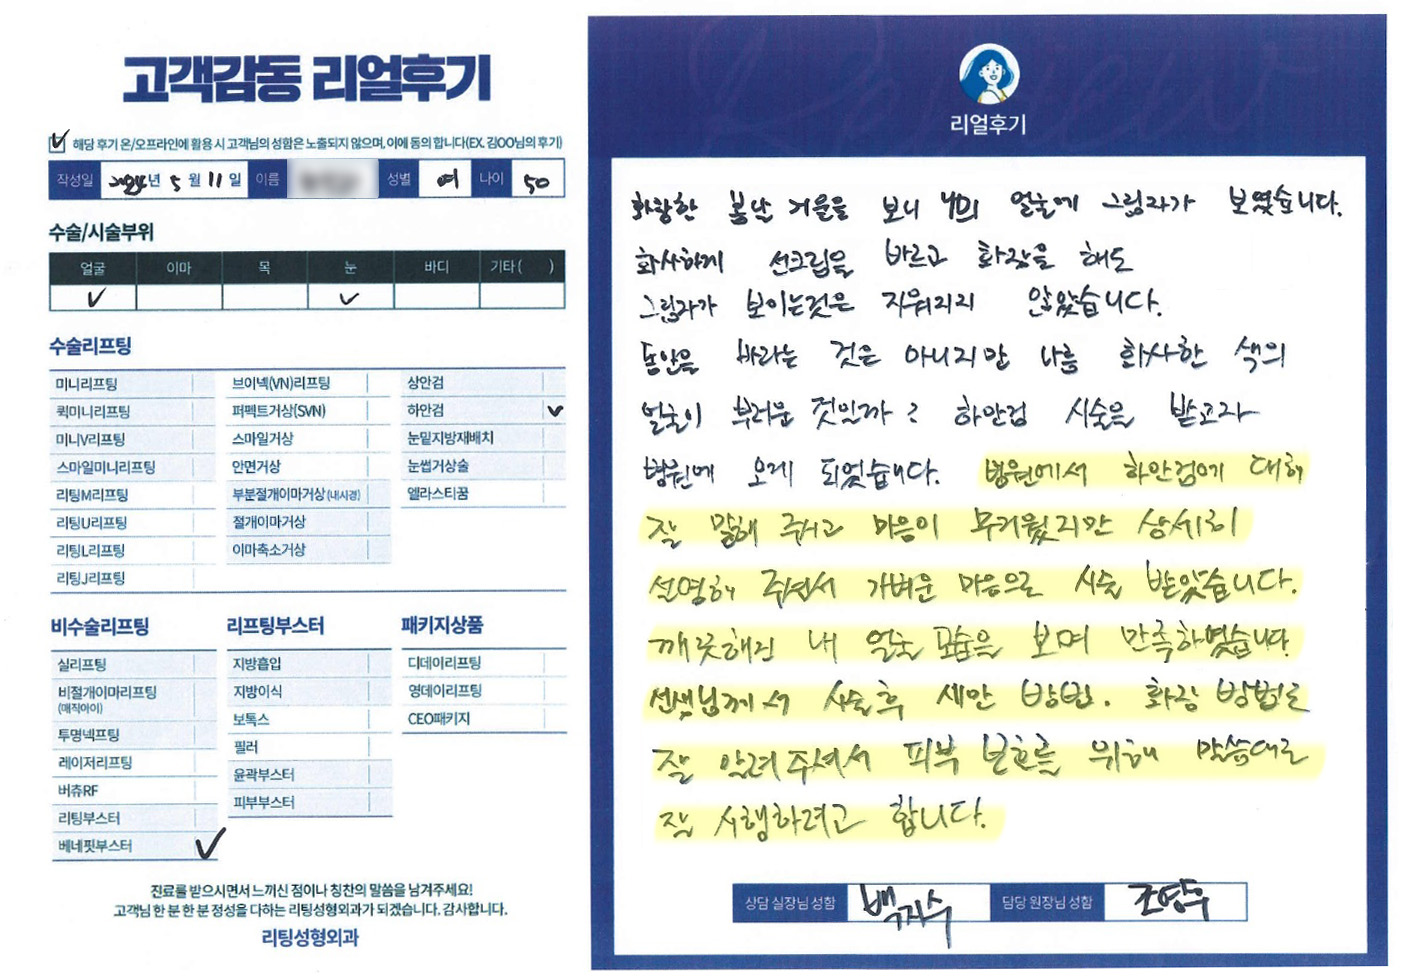 고객감동 리얼후기
해당 후기 온/오프라인에 활용 시 고객님의 성함은 노출되지 않으며, 이에 동의 합니다(EX. 김OO님의 후기)
작성일 2024년 5월 11일 이름 성별 여 나이 50
수술/시술부위
얼굴 이마 목 눈 바디 기타 ( )
수술리프팅
미니리프팅 브이넥(VN)리프팅 상안검
퀵미니리프팅 퍼펙트거상(SVN) 하안검
미니V리프팅 스마일거상 눈밑지방재배치
스마일미니리프팅 안면거상 눈썹거상술
리팅M리프팅 부분절개이마거상(내시경) 엘라스티꿈
리팅U리프팅 절개이마거상
리팅L리프팅 이마축소거상
리팅J리프팅
비수술리프팅 리프팅부스터 패키지상품
실리프팅 지방흡입 디데이리프팅
비절개이마리프팅 지방이식 영데이리프팅
(매직아이) 보톡스 CEO패키지
투명넥프팅 필러
레이저리프팅 윤곽부스터
버츄RF 피부부스터
리팅부스터
베네핏부스터
진료를 받으시면서 느끼신 점이나 칭찬의 말씀을 남겨주세요!
고객님 한 분 한 분 정성을 다하는 리팅성형외과가 되겠습니다. 감사합니다.
리팅성형외과
리얼후기
화창한 봄난 거울을 보니 나의 얼굴에 그림자가 보였습니다.
화사하게 선크림을 바르고 화장을 해도
그림자가 보이는것은 지워지지 않았습니다.
동안을 바라는 것은 아니지만 나름 화사한 색의
얼굴이 부러운 것인가? 하안검 시술을 받고자
병원에 오게 되었습니다. 병원에서 하안검에 대해
잘 말해 주시고 마음이 무거웠지만 상세히
설명해 주셔서 가벼운 마음으로 시술 받았습니다.
깨끗해진 내 얼굴 모습을 보며 만족하였습니다
선생님께서 시술후 세안 방법. 화장 방법도
잘 알려주셔서 피부 보호를 위해 말씀대로
잘 시행하려고 합니다.
상담 실장님 성함 백지수 담당 원장님 성함 조영우